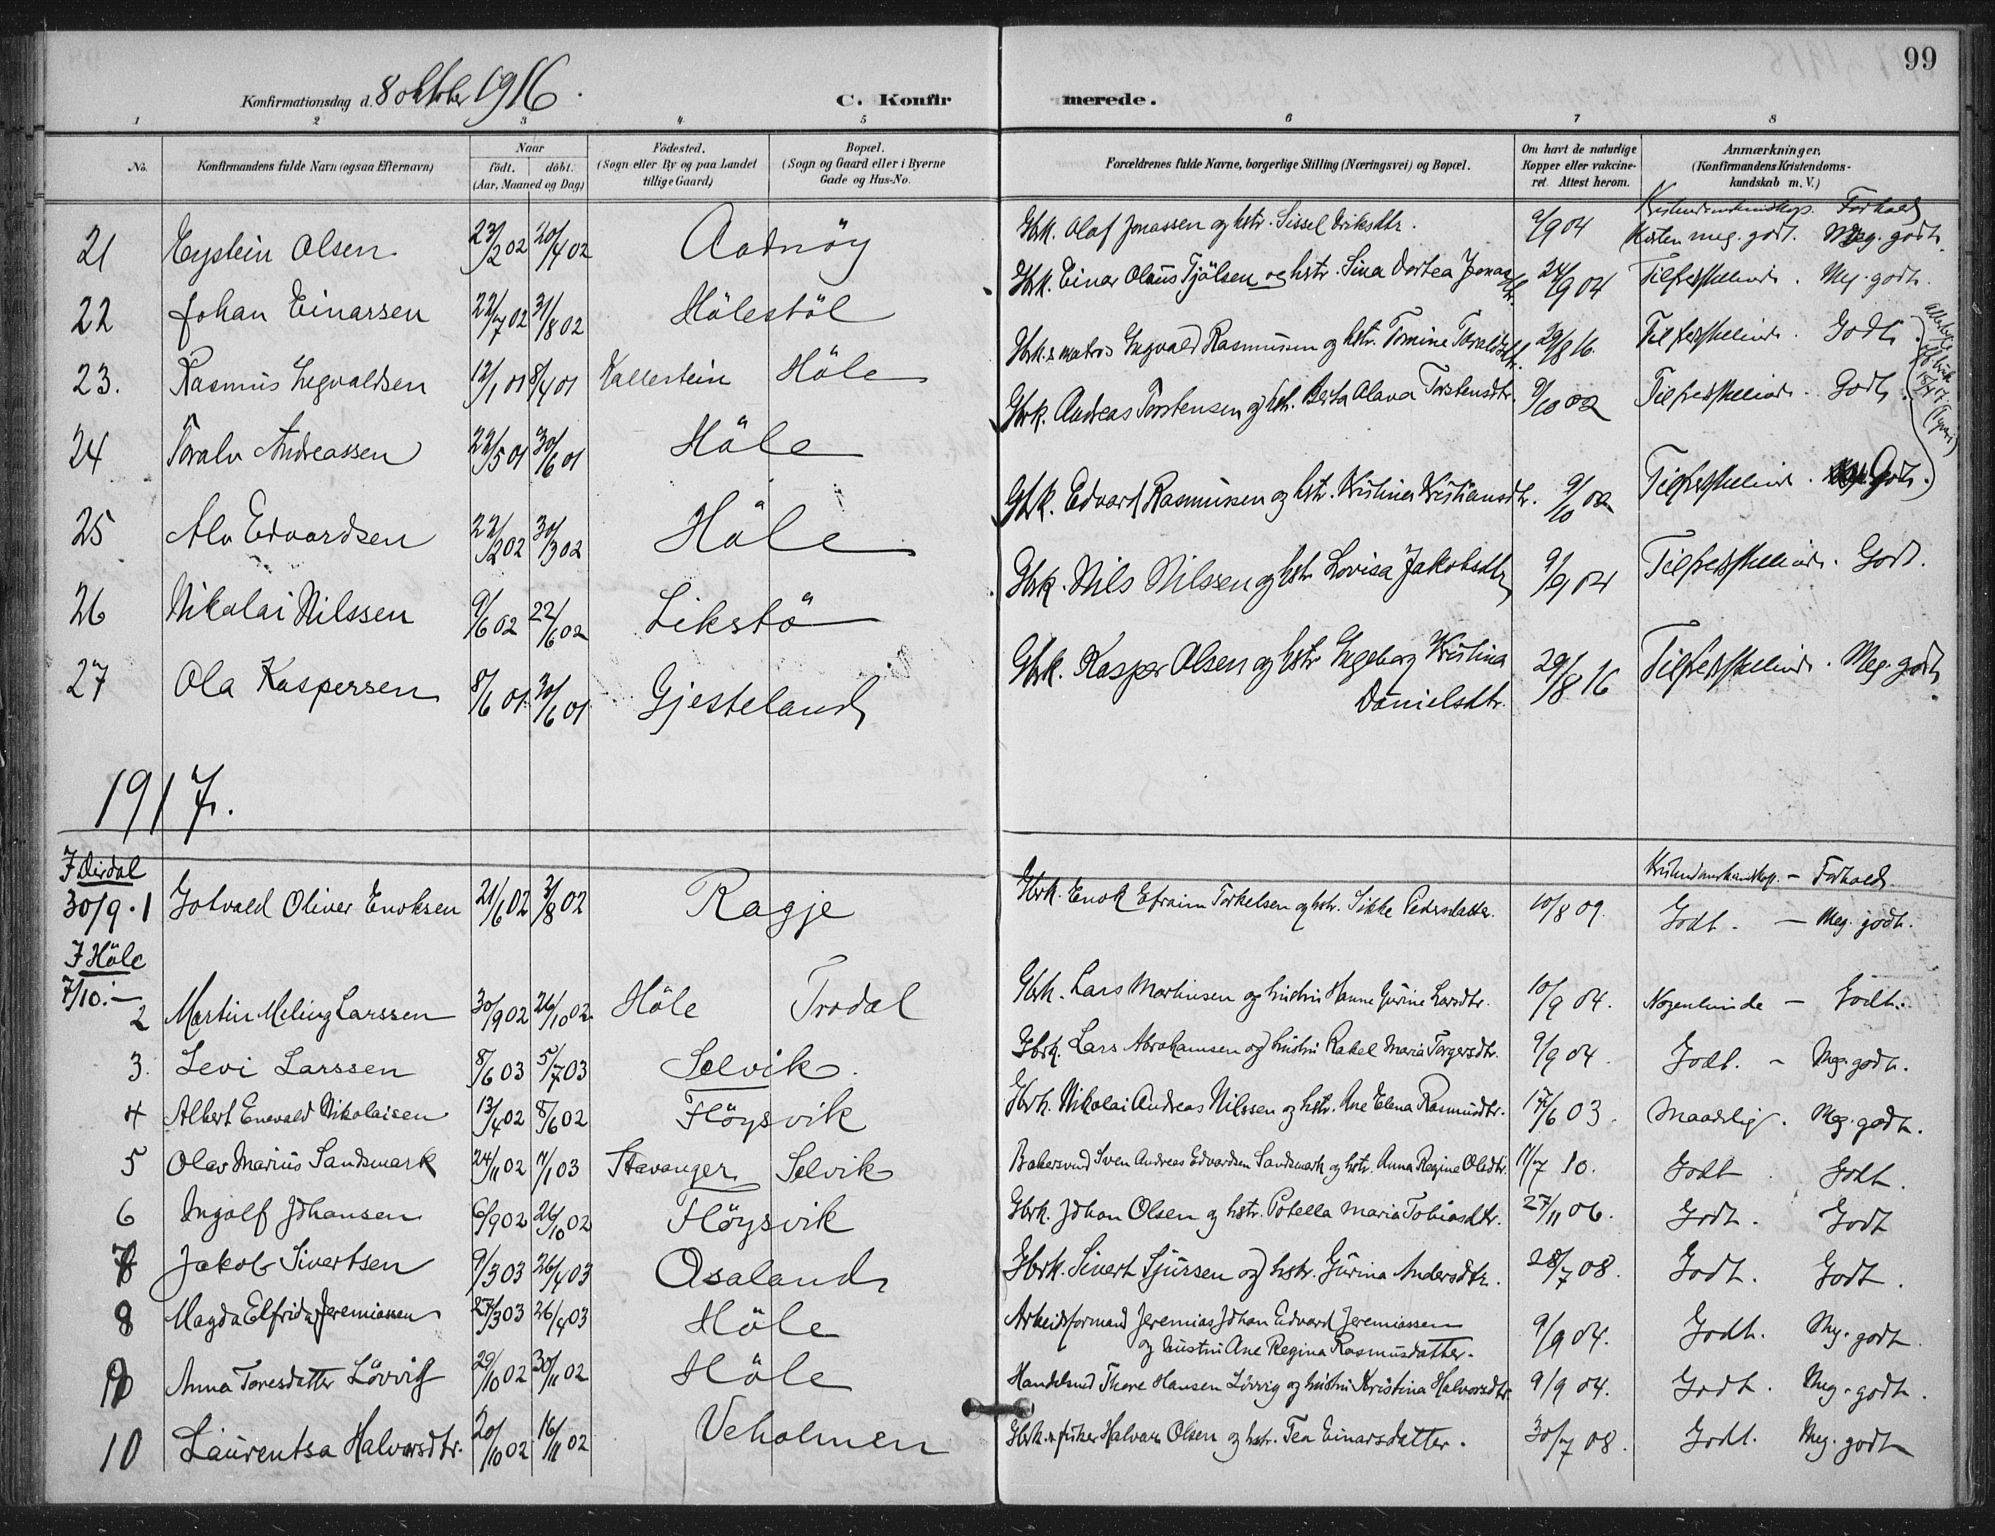 99
Konfirmationsdag d. 8 oktober 1916.
C. Konfirmerede.
1 2 3 4 5 6 7 8
No. Konfirmandens fulde Navn (ogsaa Efternavn) Naar født. døbt. (Aar, Maaned og Dag) Fødested. (Sogn eller By og paa Landet tillige Gaard) Bopæl. (Sogn og Gaard eller i Byerne Gade og Hus-No. Forældrenes fulde Navne, borgerlige Stilling (Næringsvei) og Bopæl. Om havt de naturlige Kopper eller vakcineret. Attest herom. Anmærkninger, (Konfirmandens Kristendomskundskab m. V.)
Kristendomskundskap. Forhold
21 Eystein Olsen 23/2 02 20/4 02 Adnöy Gbrk. Olaf Jonassen og hstr. Sissel Eriksdtr. 9/9 04 meg. godt. Meg. godt.
22 Johan Einarssen 22/7 02 31/8 02 Hölestöl Gbrk. Einar Olaus Tjölsen og hstr. Sina Dortea Jonasdtr. 24/9 04 Tilfredsstillende. Meg. godt.
23. Rasmus Ingvaldsen 12/1 01 8/4 01 Kallestein Höle Gbrk. & matros Ingvald Rasmussen og hstr. Tomine Toraldsdtr. 29/8 16. Tilfredsstillende. Godt.
24 Toralv Andreassen 22/5 01 30/6 01 Höle Gbrk. Andreas Torstensen og hstr. Berta Olava Torstensdtr. 9/10 02 Tilfredsstillende. Godt.
25 Alv Edvardsen 22/2 02 30/3 02 Höle Gbrk. Edvard Rasmussen og hstr. Kristine Kristiansdtr. 9/10 02 Tilfredsstillende. Godt.
26 Nikolai Nilssen 9/6 02 22/6 02 Likstö Gbrk. Nils Nilssen og hstr. Lovisa Jakobsdtr 9/9 04 Tilfredsstillende. Godt.
27 Ola Kaspersen 8/6 01 30/6 01 Gjesteland Gbrk. Kasper Olsen og hstr Ingeborg Kristina Danielsdtr. 29/8 16 Tilfredsstillende. Meg. godt.
1917.
Kristendomskundskap. - Forhold.
I Dirdal
30/9. 1 Gotvald Oliver Enoksen 21/6 02 3/8 02 Ragje Gbrk. Enok Efraim Torkelsen og hstr. Sikke Pedersdatter. 10/8 09. Godt. - Meg. godt.
I Höle
7/10. - 2 Martin Meling Larssen 30/9 02 26/10 02 Höle Trodal Gbrk. Lars Martinsen og hustru Hanne Gurine Larsdtr. 10/9 04. Nogenlunde - Godt.
3. Levi Larssen 8/6 03 5/7 03 Selvik. Gbrk. Lars Abrahamsen og hustru Rakel Maria Torgersdtr. 9/9 04. Godt. - Meg. godt.
4 Albert Enevald Nikolaisen 13/4 02 8/6 02 Flöysvik Gbrk. Nikolai Andreas Nilssen og hstr. Ane Elena Rasmusdtr. 17/6 03. Maadelig. Meg. godt.
5 Olav Marius Sandsmark 24/11 02 7/1 03 Stavanger Selvik Bakersvend Sven Andreas Edvardsen Sandsmark og hstr. Anna Regine Olsdtr. 11/7 10. Godt Godt.
6 Ingolf Johansen 6/9 02 26/10 02 Flöysvik Gbrk. Johan Olsen og hstr. Potella Maria Tobiasdtr. 27/11 06. Godt. Godt
7 Jakob Sivertsen 9/3 03 26/4 03 Osaland Gbrk. Sivert Sjursen og hstr. Gurina Andersdtr. 28/7 08. Godt. Godt.
8 Magda Elfrida Jeremiassen 27/3 03 26/4 03 Höle Arbeidsformand Jeremias Johan Edvard Jeremiassen og hustru Ane Regina Rasmusdatter. 9/9 04. Godt. Meg. godt
Anna Toresdatter Lövvig 29/10 02 30/11 02 Höle Handelsmd Thore Hansen Lövvig og hustru Kristina Halvorsdtr. 9/9 04. Godt. Meg. godt.
10 Laurentsa Halvorsdtr. 20/10 02 16/11 02 Veholmen Gbrk. & fisker Halvar Olsen og hstr. Tea Einarsdatter. 30/7 08. Godt. Meg. godt